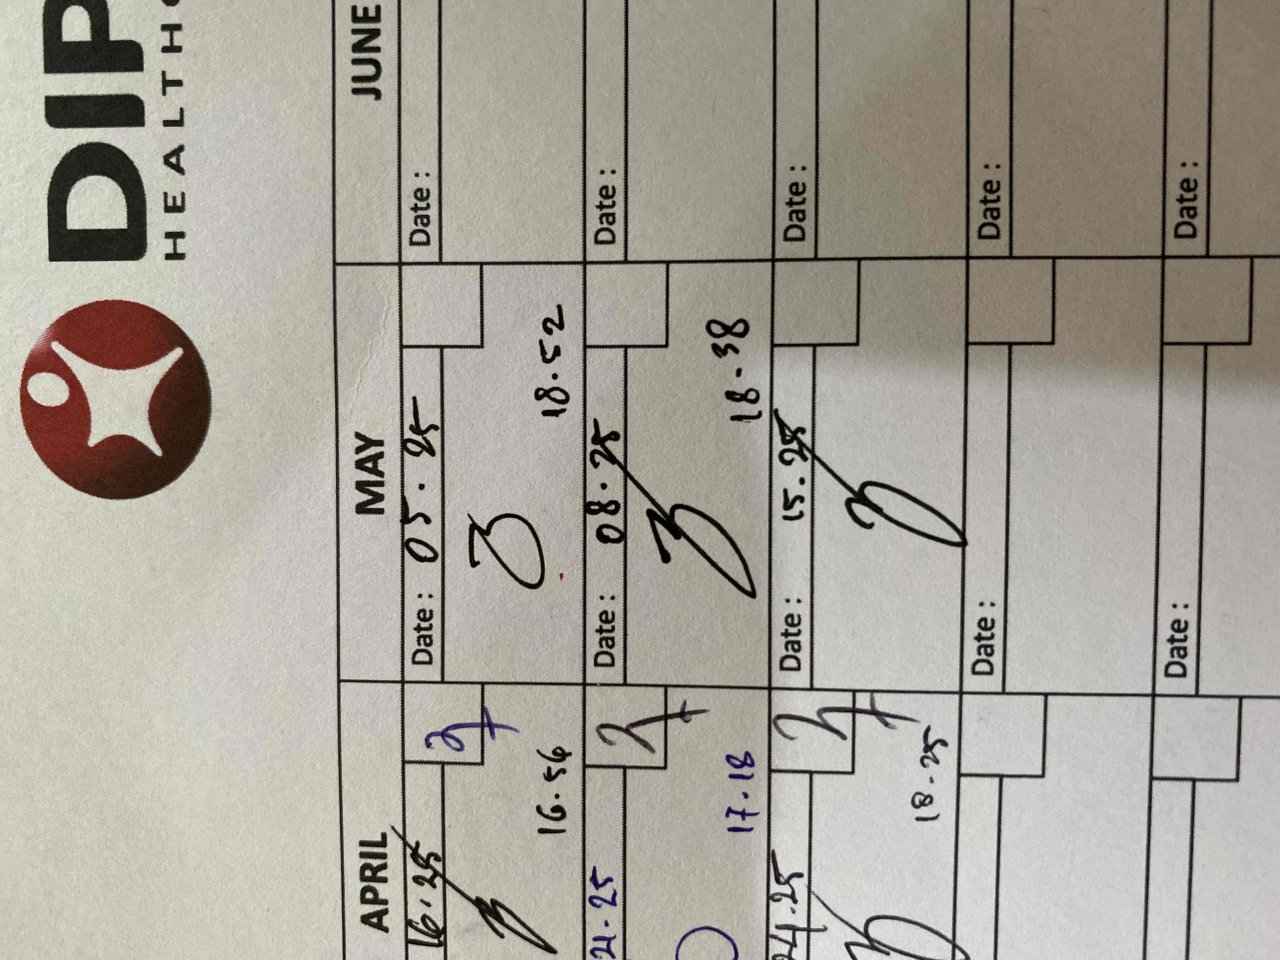 DIP
HEALTH
APRIL MAY JUNE
16.25 Date : 05.25 Date :
16.56 18.52
21.25 Date : 08.25 Date :
17.18 18-38
24.25 Date : 15.25 Date :
18.25
Date : Date :
Date : Date :